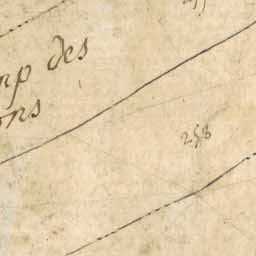 mp des
ons
258